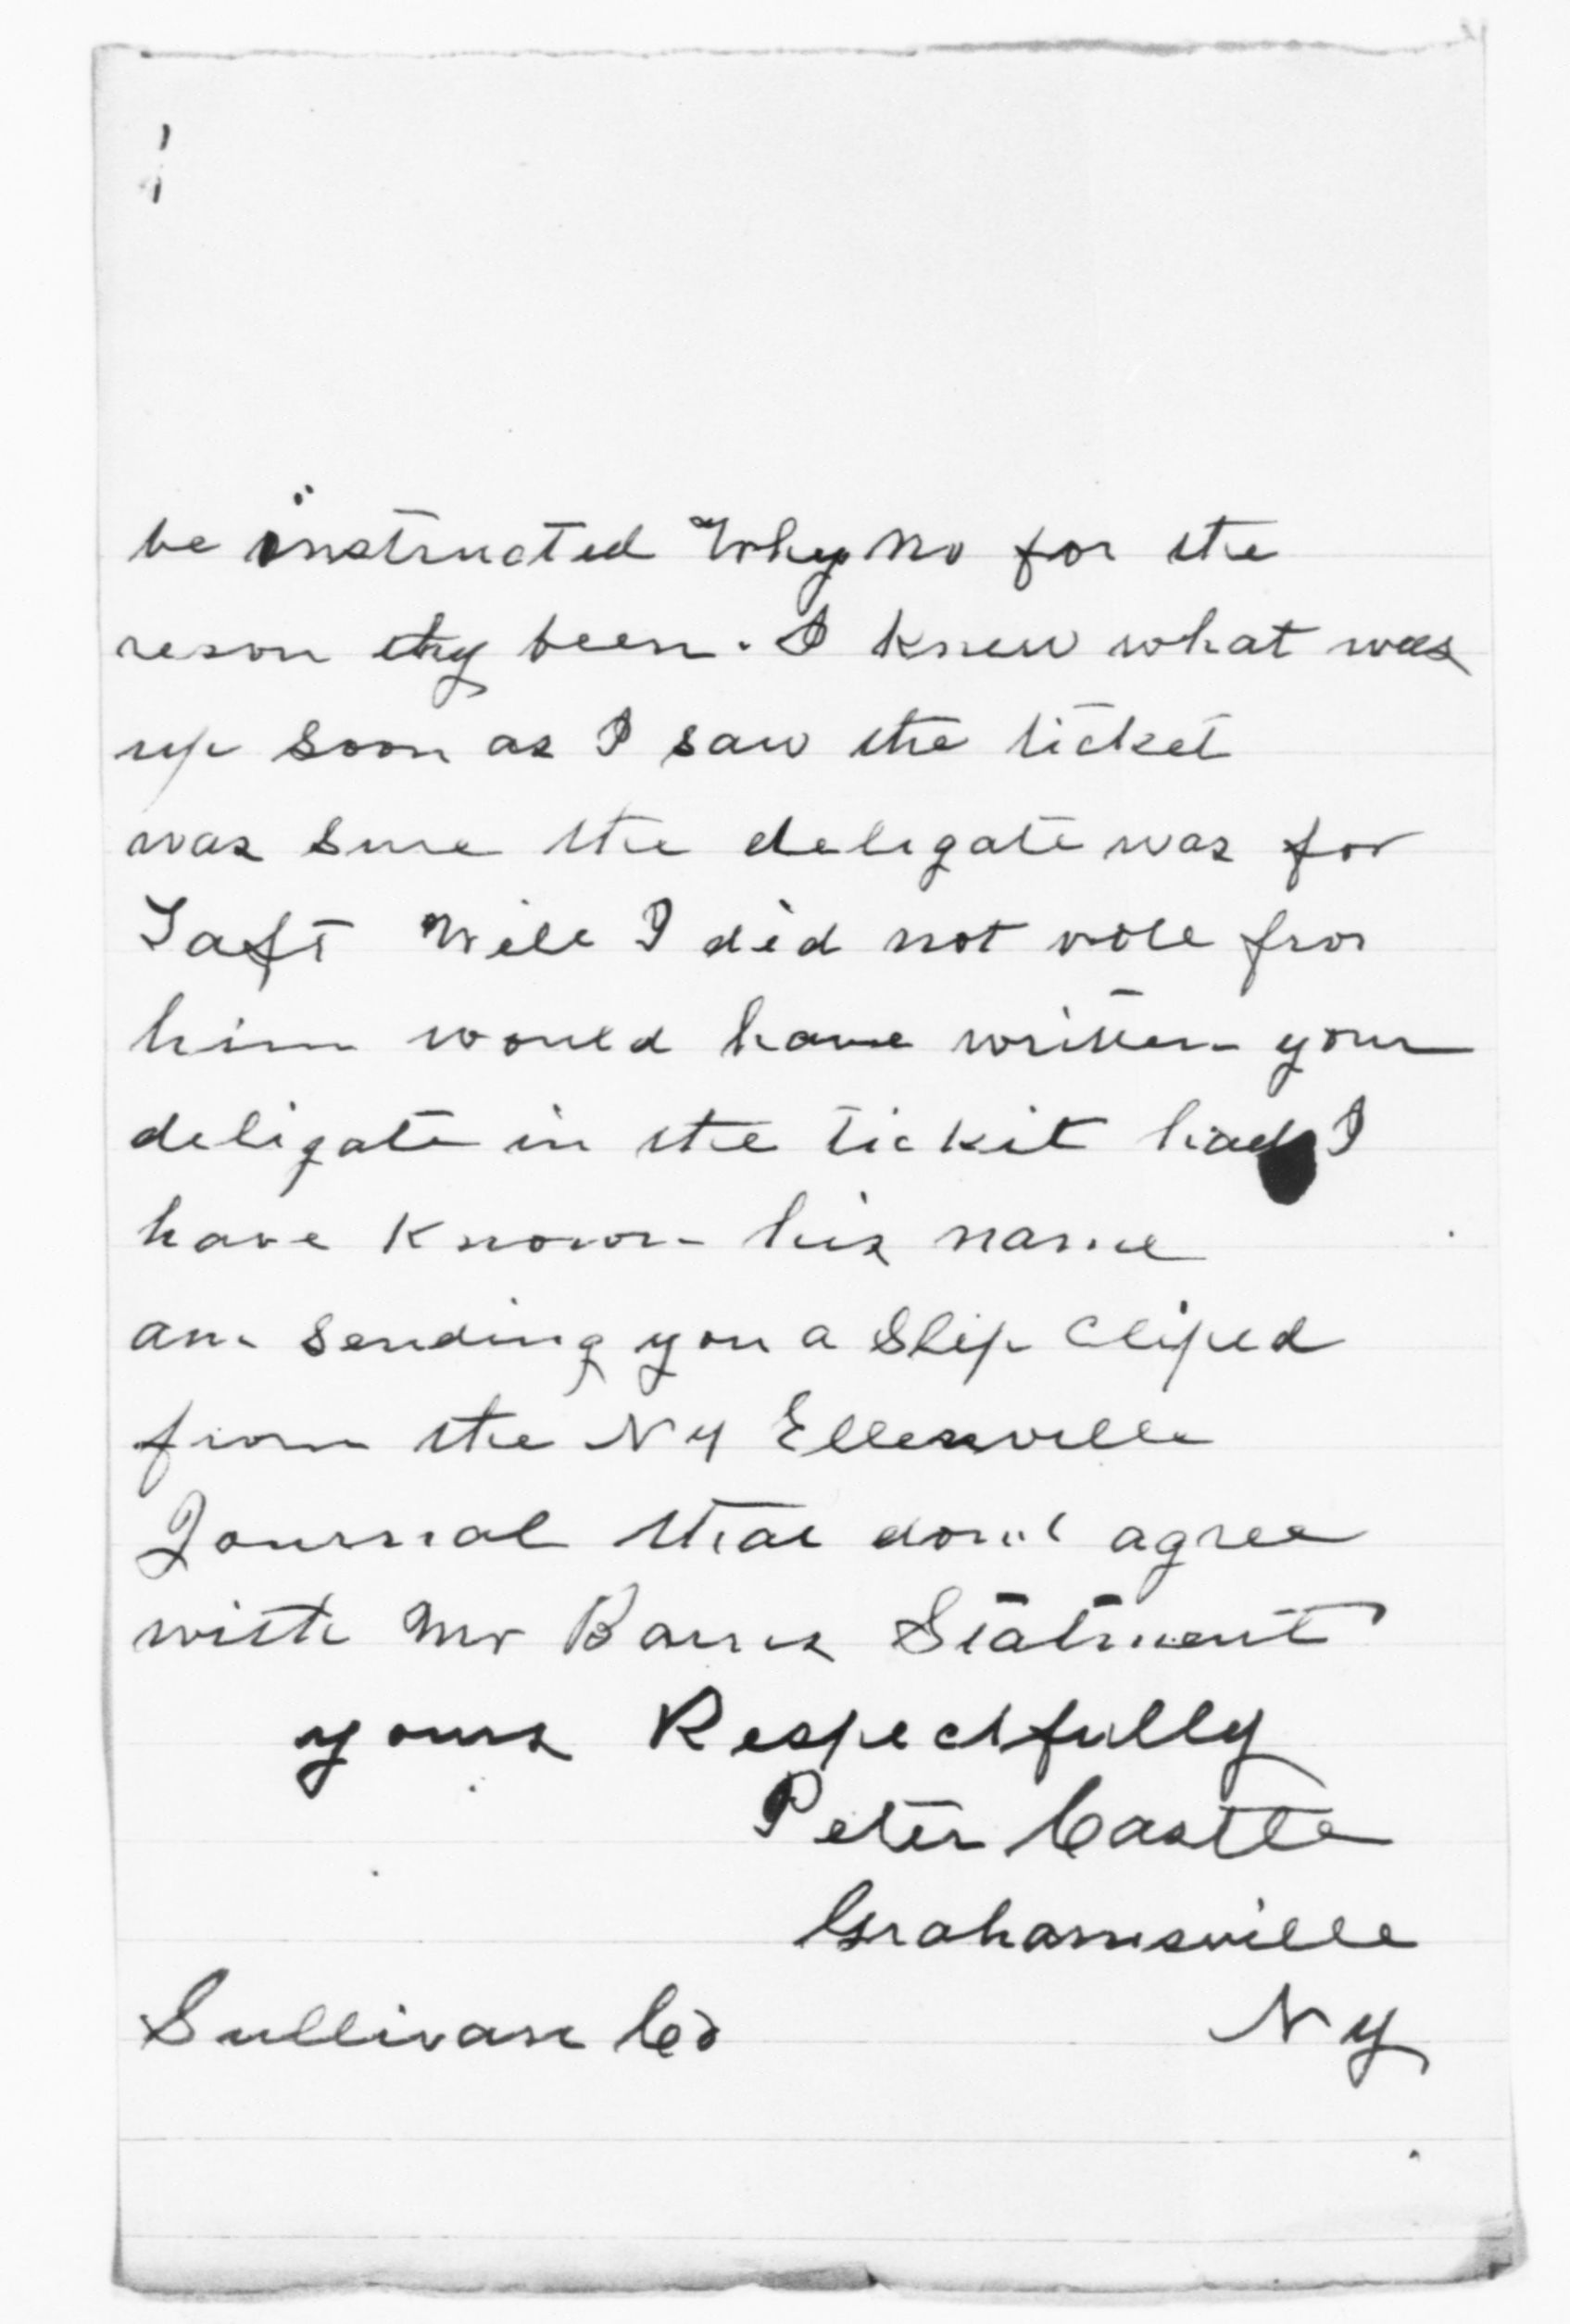 be instructed Why no for the
reson thy been. I knew what was
up soon as I saw the ticket
was sure the deligate was for
Taft Well I did not vote for
him would have written your
deligate in the tickit had I
have known his name
am sending you a slip cliped
from the NY Ellenville
Journal that dont agree
with Mr Barnes Statment
yours Respectfully
Peter Castle
Grahamsville
Sullivan Co NY